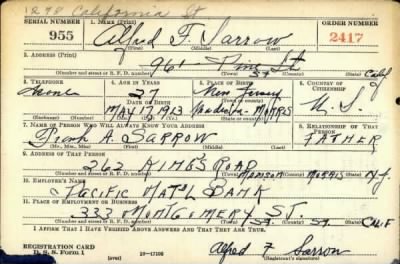 1298 California St
SERIAL NUMBER 1. NAME (Print) ORDER NUMBER
955 Alfred F. Sarrow 2417
(First) (Middle) (Last)
2. ADDRESS (Print)
961 Pine St S.F. Calif
(Number and street or R. F. D. number) (Town) (County) (State)
3. TELEPHONE 4. AGE IN YEARS 5. PLACE OF BIRTH 6. COUNTRY OF CITIZENSHIP
None 27 New Jersey
DATE OF BIRTH
MAY 17 1913 Madison - MORRIS U. S.
(Exchange) (Number) (Mo.) (Day) (Yr.) (Town or county) (State or country)
7. NAME OF PERSON WHO WILL ALWAYS KNOW YOUR ADDRESS 8. RELATIONSHIP OF THAT PERSON
Frank A. SARROW FATHER
(Mr., Mrs., Miss) (First) (Middle) (Last)
9. ADDRESS OF THAT PERSON
KINGS ROAD MADISON MORRIS N.J.
(Number and street or R. F. D. number) (Town) (County) (State)
10. EMPLOYER'S NAME
PACIFIC NAT'L BANK
11. PLACE OF EMPLOYMENT OR BUSINESS
333 MONTGOMERY ST. S.F. S.F. CALIF
(Number and street or R. F. D. number) (Town) (County) (State)
I AFFIRM THAT I HAVE VERIFIED ABOVE ANSWERS AND THAT THEY ARE TRUE.
REGISTRATION CARD
D. S. S. Form 1 Alfred F Sarrow
(Registrant's signature)